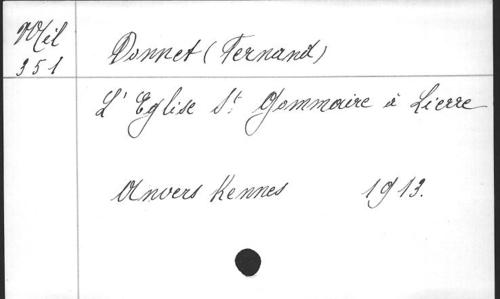 Mél
351
Donnet (Fernand)
L'Eglise St. Gommaire à Lierre
Anvers Kennes 1913.